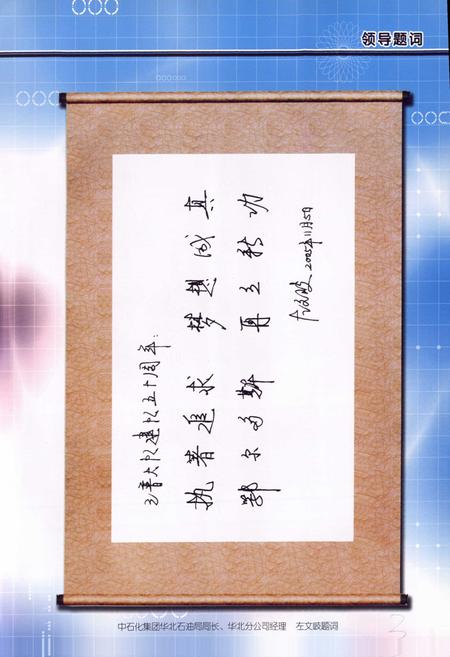 领导题词
三普大队建队五十周年：
执著追求 梦想成真
鄂尔多斯 再立新功
左文岐 2005年11月5日
中石化集团华北石油局局长、华北分公司经理 左文岐题词